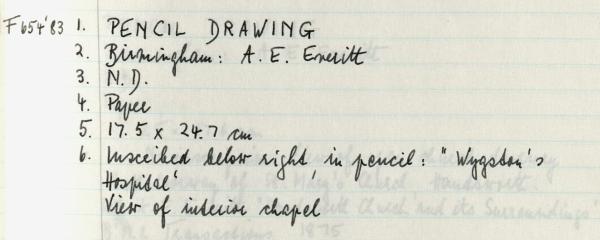 F654'83 1. PENCIL DRAWING
2. Birmingham: A. E. Everitt
3. N.D.
4. Paper
5. 17.5 x 24.7 cm
6. Inscribed below right, in pencil: "Wygston's
Hospital'
View of interior chapel